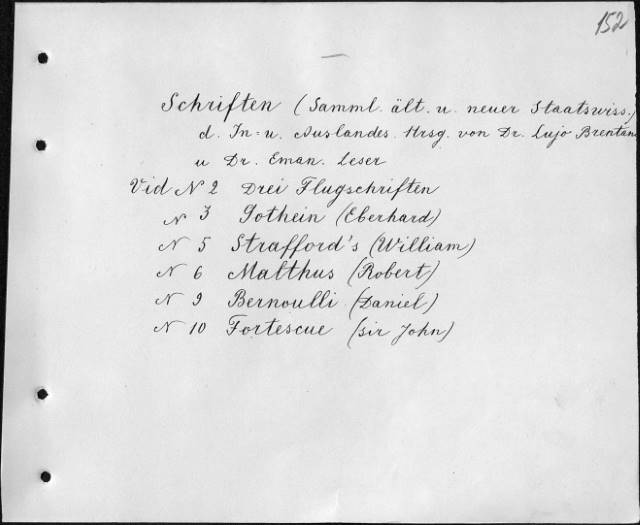 152
—
Schriften (Samml. ält. u. neuer Staatswiss.)
d. In= u. Auslandes. Hrsg. von Dr. Lujo Brentan
u Dr. Eman. Leser
Vid N 2 Drei Flugschriften
N 3 Gothein (Eberhard)
N 5 Strafford's (William)
N 6 Malthus (Robert)
N 9 Bernoulli (Daniel)
N 10 Fortescue (Sir John)